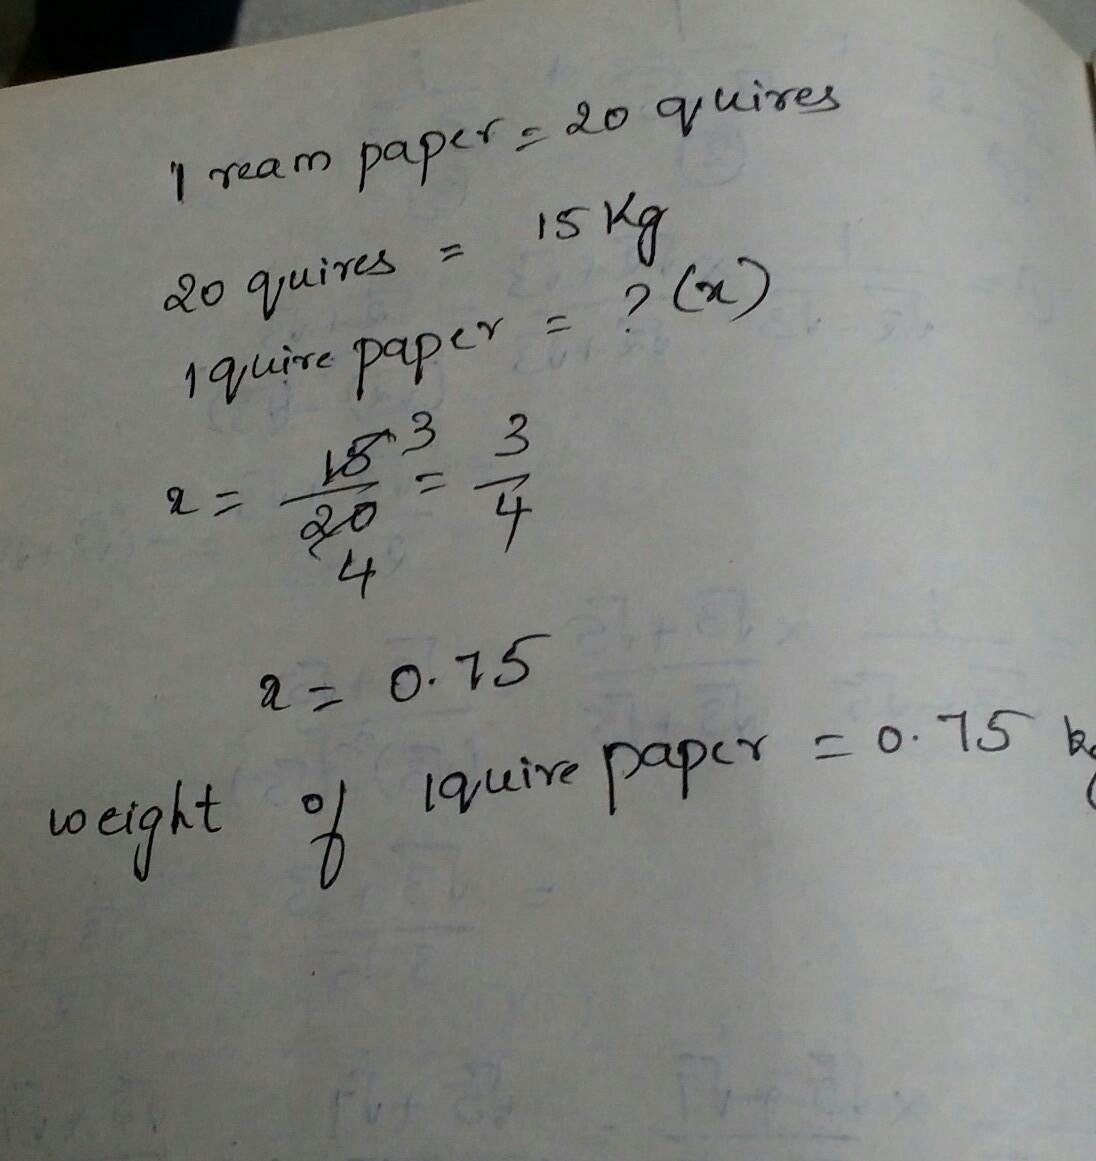 1 ream paper = 20 quires
20 quires = 15 Kg
1 quire paper = ? (x)
x = 15/20 3/4 = 3/4
x = 0.75
weight of 1 quire paper = 0.75 kg